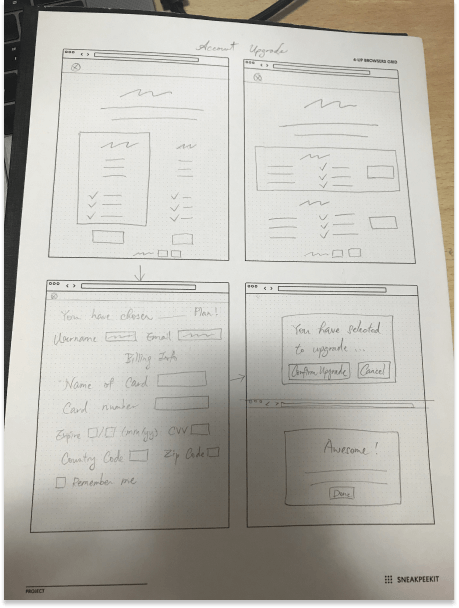 Account Upgrade
4-UP BROWSERS GRID
You have chosen ____ Plan!
Username Email
Billing Info
Name of Card
Card number
Expire / (mm/yy) CVV
Country Code Zip Code
Remember me
You have selected
to upgrade ...
Confirm Upgrade Cancel
Awesome!
Done
PROJECT
SNEAKPEEKIT